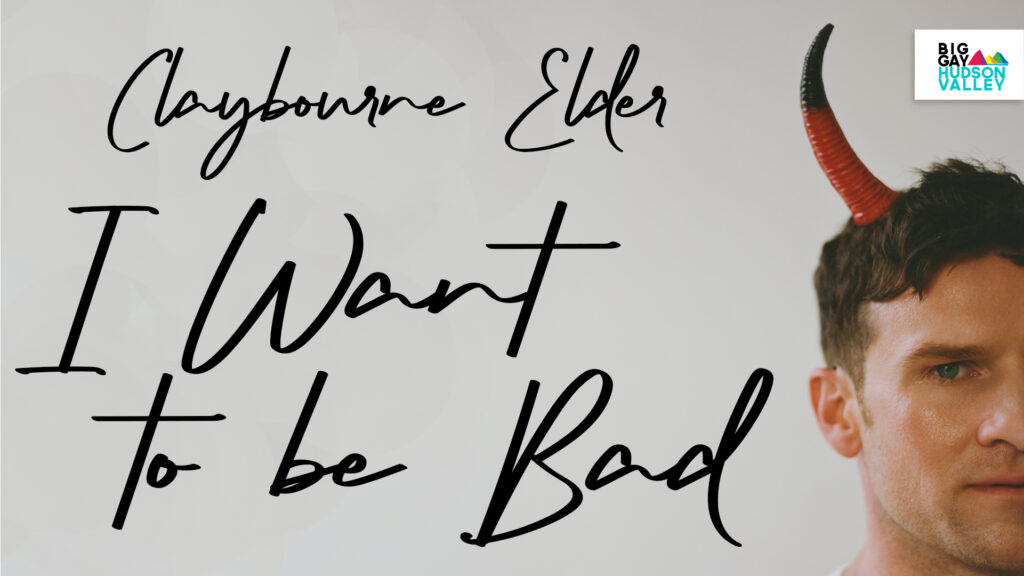 Claybourne Elder
I Want
to be Bad
BIG
GAY
HUDSON
VALLEY